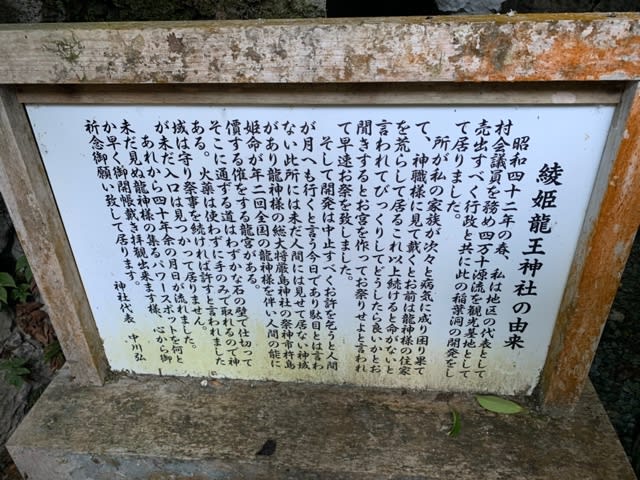 綾姫龍王神社の由来
昭和四十二年の春、私は地区の代表として
村会議員を務め四万十源流を観光基地として
売出すべく行政と共に此の稲葉洞の開発をし
て居りました。
所が私の家族が次々と病気に成り困り果て
て、神職様に見て戴くとお前は龍神様の住家
を荒らして居るこれ以上続けると命がないと
言われてびっくりしてどうしたら良いかとお
聞きするとお宮を作ってお祭りせよと言われ
て早速お祭を致しました。
そして開発は中止すべくお許を乞うと人間
が月へも行くと言う今日であり駄目とは言わ
ない此所には未だ人間には見せて居ない神域
があり龍神様の総大将厳島神社の祭神市杵島
姫命が年二回全国の龍神様を伴い人間の能に
価する催をする龍宮がある。
そこに通ずる道はわずかな石の壁で仕切って
ある。火薬は使わずに手のみで取れるので神
域は守り祭事を続ければ許すと言われました
が未だ入口は見つかって居りません。
あれから四十年余の月日が流れました。
未だ見ぬ龍神様の集るパワースポットを何と
か早く御開帳戴き拝観出来ます様、心から御
祈念御願い致して居ります。
神社代表 中川弘